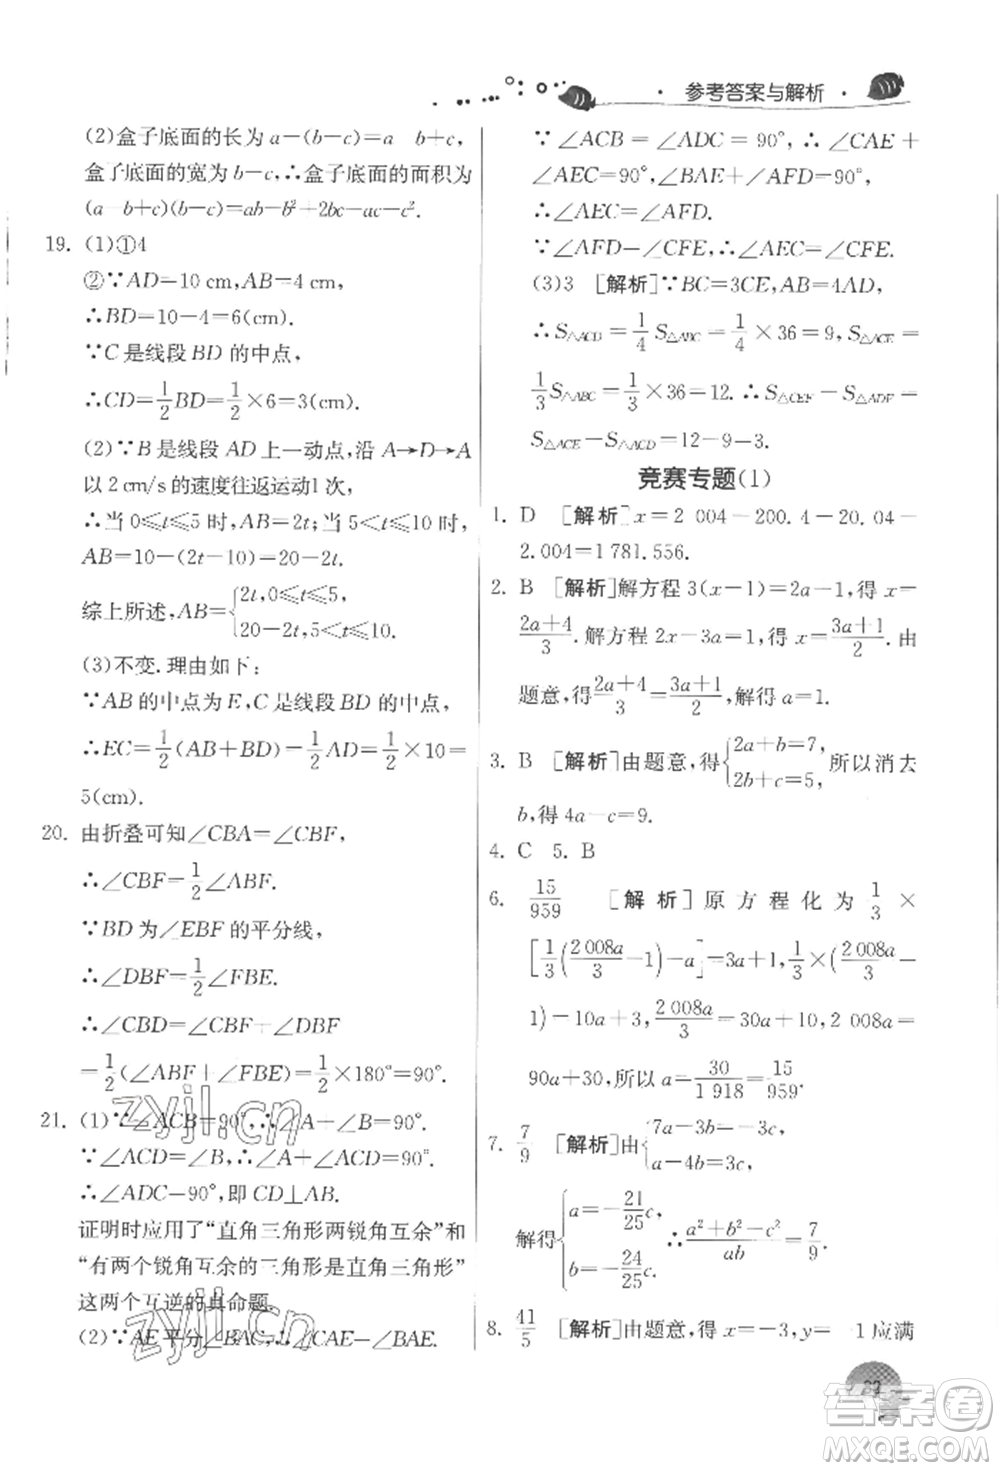 · 参考答案与解析 ·
(2)盒子底面的长为 a-(b-c)=a b+c
盒子底面的宽为 b-c,∴盒子底面的面积为
(a b+c)(b-c)=ab-b²+2bc-ac-c².
19. (1)①4
②∵AD=10 cm,AB=4 cm,
∴BD=10-4=6(cm).
∵C 是线段 BD 的中点,
∴CD=1/2BD=1/2×6=3(cm).
(2)∵B 是线段 AD 上一动点,沿 A→D→A
以 2 cm/s 的速度往返运动1 次,
∴当 0≤t≤5 时,AB=2t;当 5<t≤10 时,
AB=10-(2t-10)=20-2t.
综上所述,AB={2t,0≤t≤5,
20-2t,5<t≤10.
(3)不变.理由如下:
∵AB 的中点为 E,C 是线段 BD 的中点,
∴EC=1/2(AB+BD)=1/2AD=1/2×10=
5(cm).
20. 由折叠可知∠CBA=∠CBF,
∴∠CBF=1/2∠ABF.
∵BD 为∠EBF 的平分线,
∴∠DBF=1/2∠FBE.
∴∠CBD=∠CBF+∠DBF
=1/2(∠ABF+∠FBE)=1/2×180°=90°.
21. (1)∵∠ACB=90°,∴∠A+∠B=90°.
∵∠ACD=∠B,∴∠A+∠ACD=90°.
∴∠ADC-90°,即 CD⊥AB.
证明时应用了“直角三角形两锐角互余”和
“有两个锐角互余的三角形是直角三角形”
这两个互逆的真命题.
(2)∵AE平分∠BAC,∴∠CAE-∠BAE.
∵∠ACB=∠ADC=90°,∴∠CAE+
∠AEC=90°,∠BAE+∠AFD=90°.
∴∠AEC=∠AFD.
∵∠AFD-∠CFE,∴∠AEC=∠CFE.
(3)3 [解析]∵BC=3CE,AB=4AD,
∴S△ACD=1/4S△ABC=1/4×36=9,S△ACE=
1/3S△ABC=1/3×36=12.∴S△CEF-S△ADF=
S△ACE-S△ACD=12-9-3.
竞赛专题(1)
1. D [解析]x=2 004-200.4-20.04-
2.004=1 781.556.
2. B [解析]解方程 3(x-1)=2a-1,得 x=
(2a+4)/3.解方程 2x-3a=1,得 x=(3a+1)/2.由
题意,得(2a+4)/3=(3a+1)/2,解得 a=1.
3. B [解析]由题意,得{2a+b=7, 2b+c=5,所以消去
b,得 4a-c=9.
4. C 5. B
6. 15/959 [解析]原方程化为 1/3×
[1/3(2 008a/3-1)-a]=3a+1,1/3×(2 008a/3-
1)-10a+3,2 008a/3=30a+10,2 008a=
90a+30,所以 a=30/1 918=15/959.
7. 7/9 [解析]由{7a-3b=-3c, a-4b=3c,
解得{a=-21/25c, b=-24/25c.∴(a²+b²-c²)/ab=7/9.
8. 41/5 [解析]由题意,得 x=-3,y= 1应满
zyjl.cn
zyjl.cn
答案圈
MXQE.COM